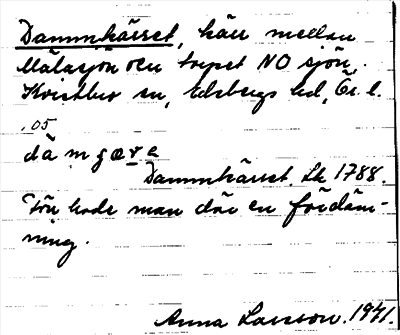 Dammkärret, kärr mellan
Målasjön och torpet NO sjön.
Kvistbro sn, Edsbergs hd, Ör. l.
.05
då m ç œ r e
Dammkärret. Lk 1788.
Förr hade man där en fördäm-
ning.
Anna Larsson. 1941.